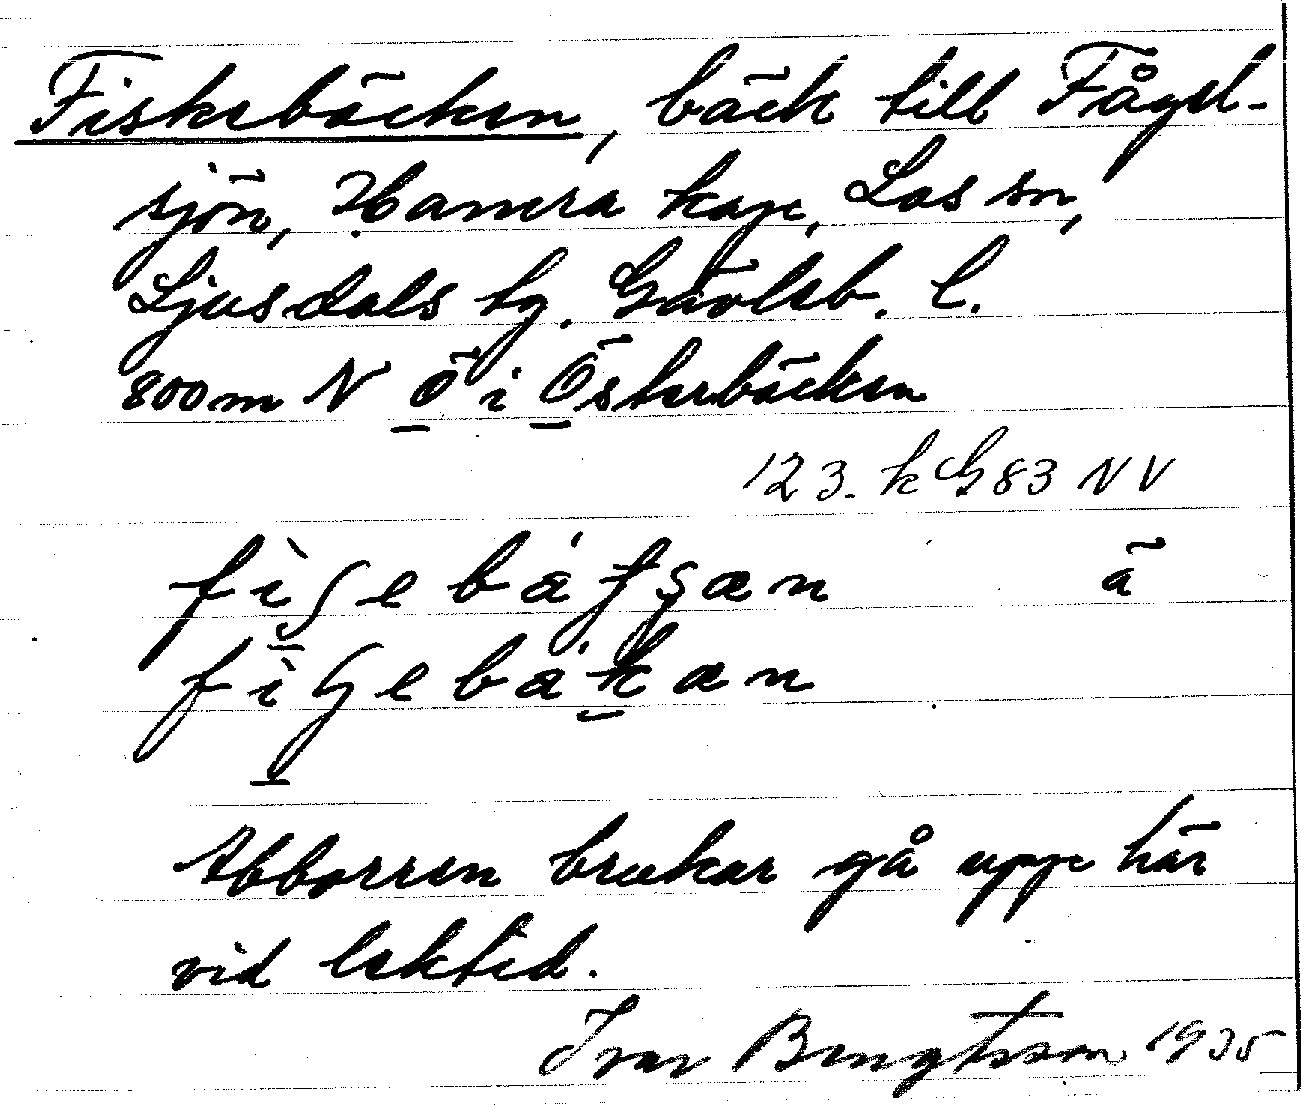 Fiskebäcken, bäck till Fågel-
sjön, Hamra kap, Los sn,
Ljusdals tg. Gävleb. l.
800 m N Ö i Österbäcken
123. k G 83 NV
ä
Abborren brukar gå upp här
vid lektid.
Ivar Bengtsson 1935